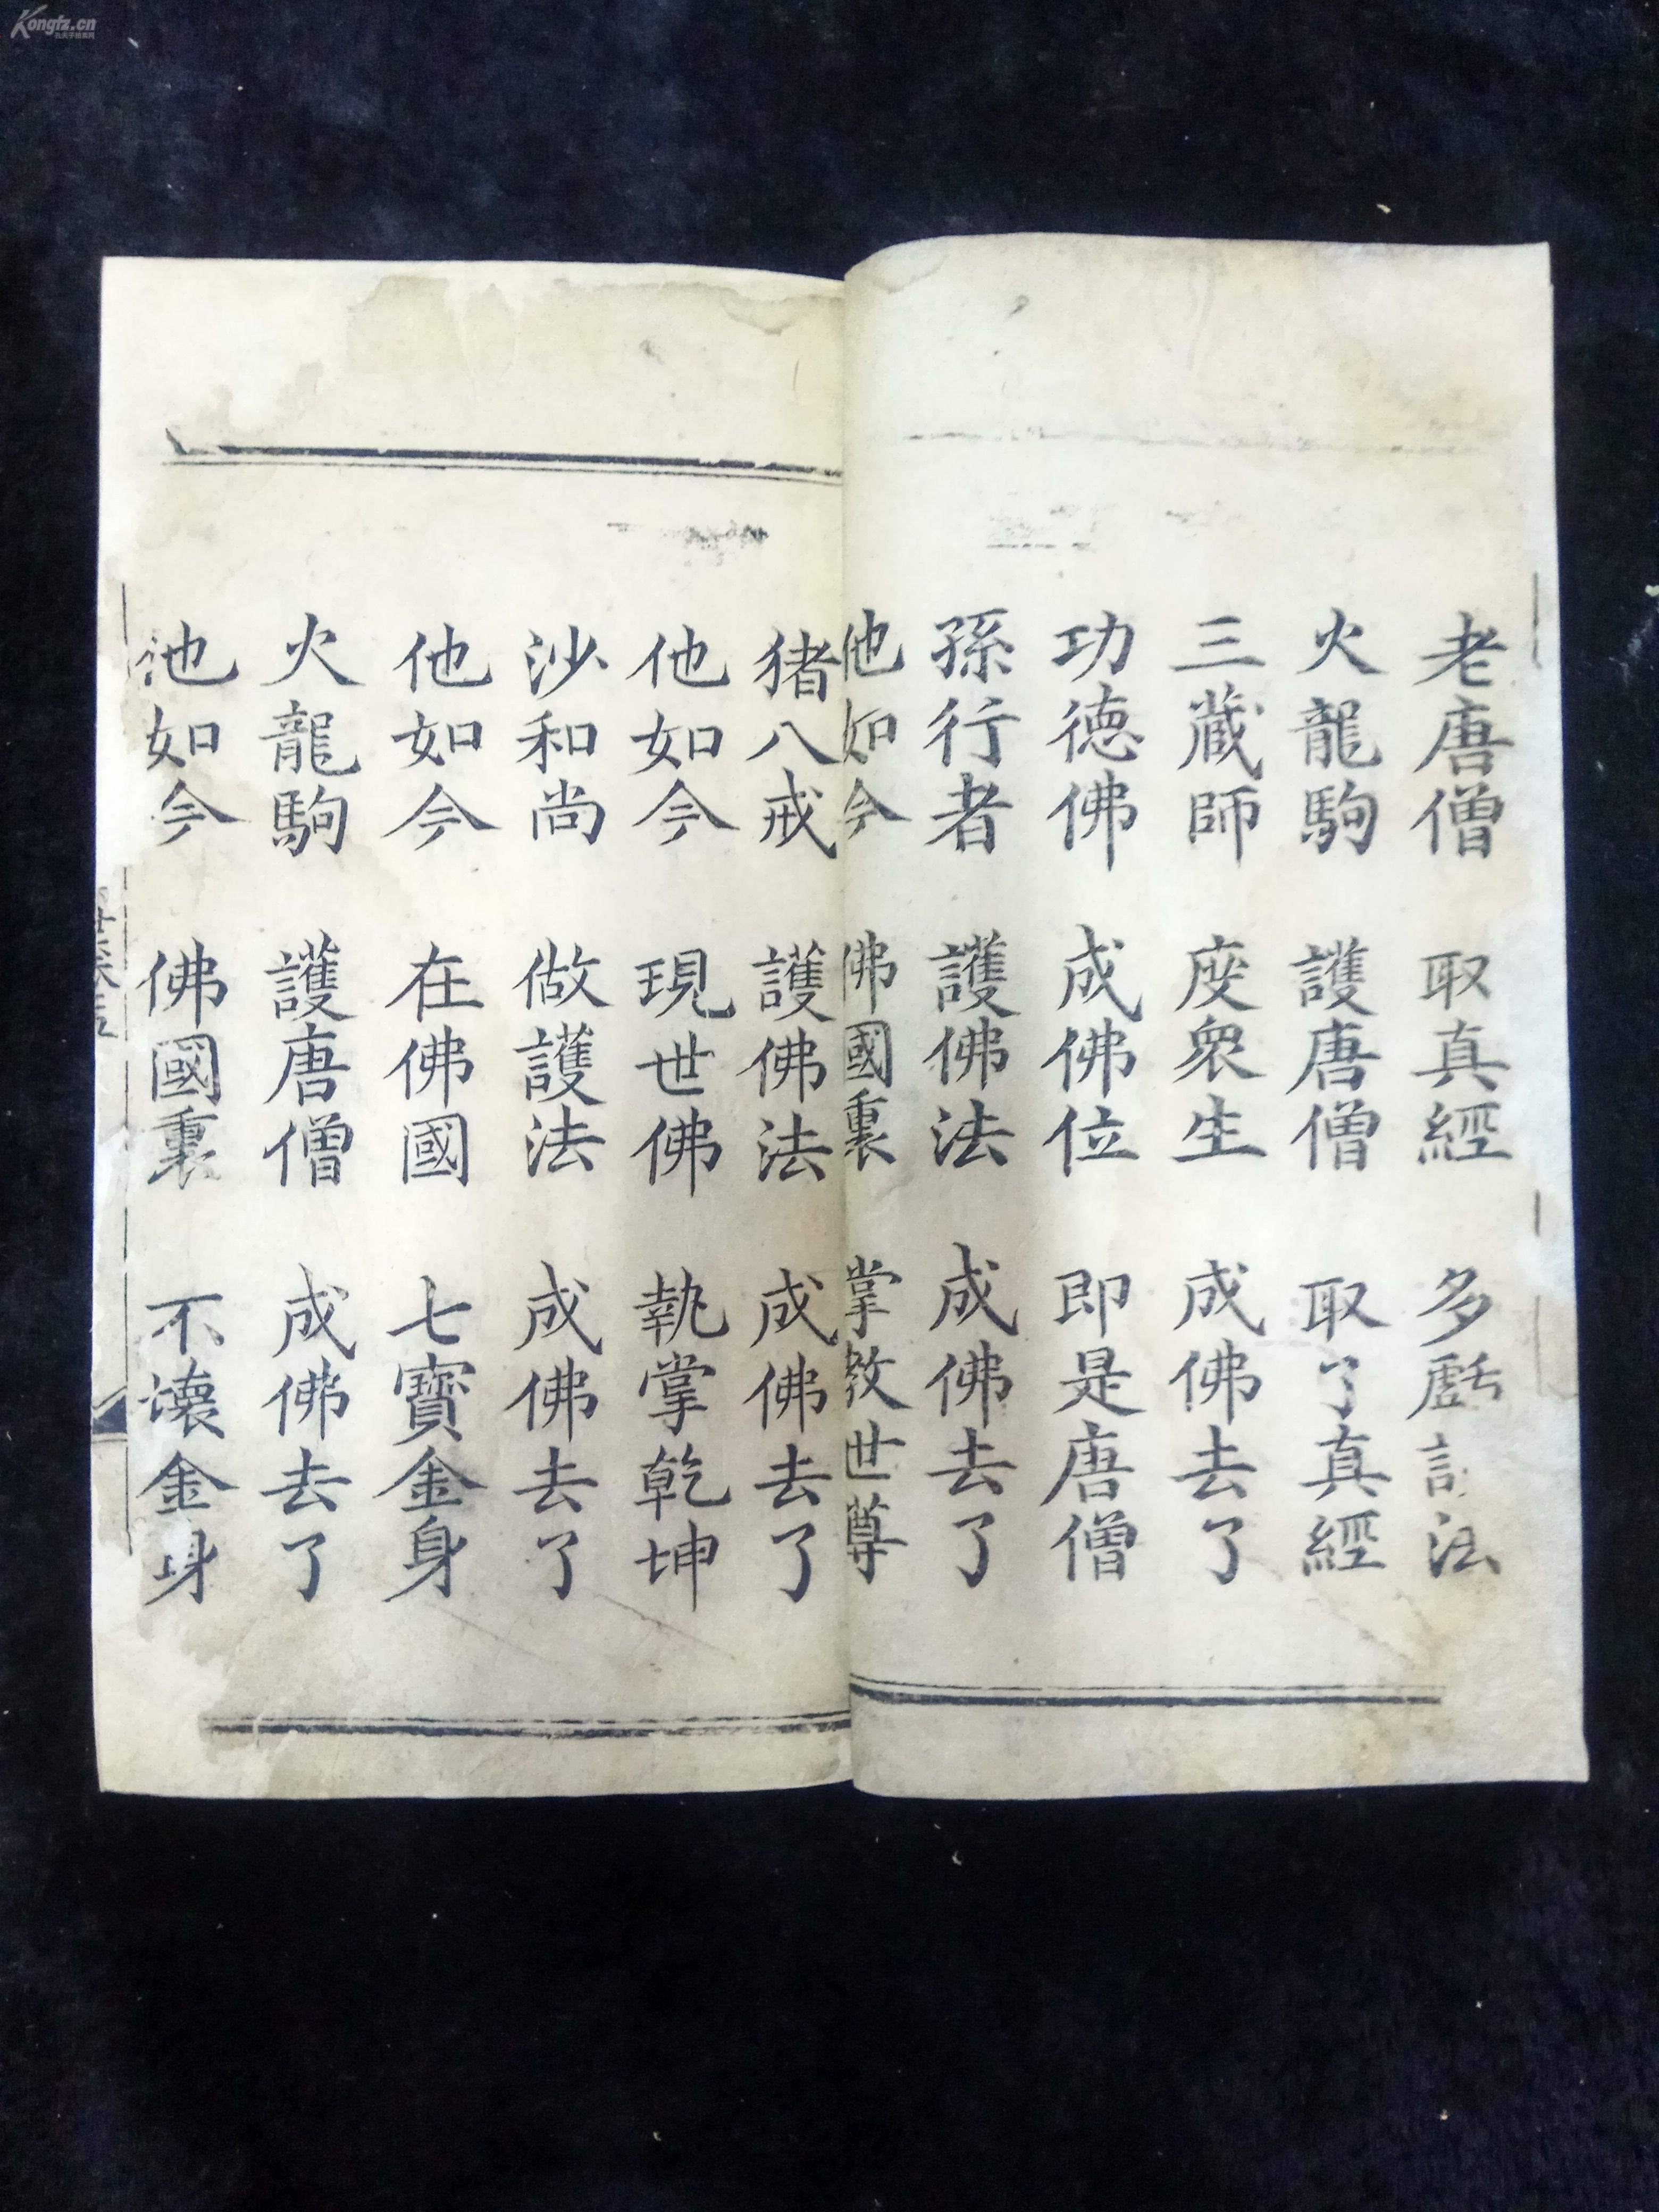 老唐僧 取真經 多 法
火龍駒 護唐僧 取了真經
三藏師 度衆生 成佛去了
功德佛 成佛位 即是唐僧
孫行者 護佛法 成佛去了
他如今 佛國裏 掌教世尊
猪八戒 護佛法 成佛去了
他如今 現世佛 執掌乾坤
沙和尚 做護法 成佛去了
他如今 在佛國 七寶金身
火龍駒 護唐僧 成佛去了
他如今 佛國裏 不壞金身
Kongfz.cn